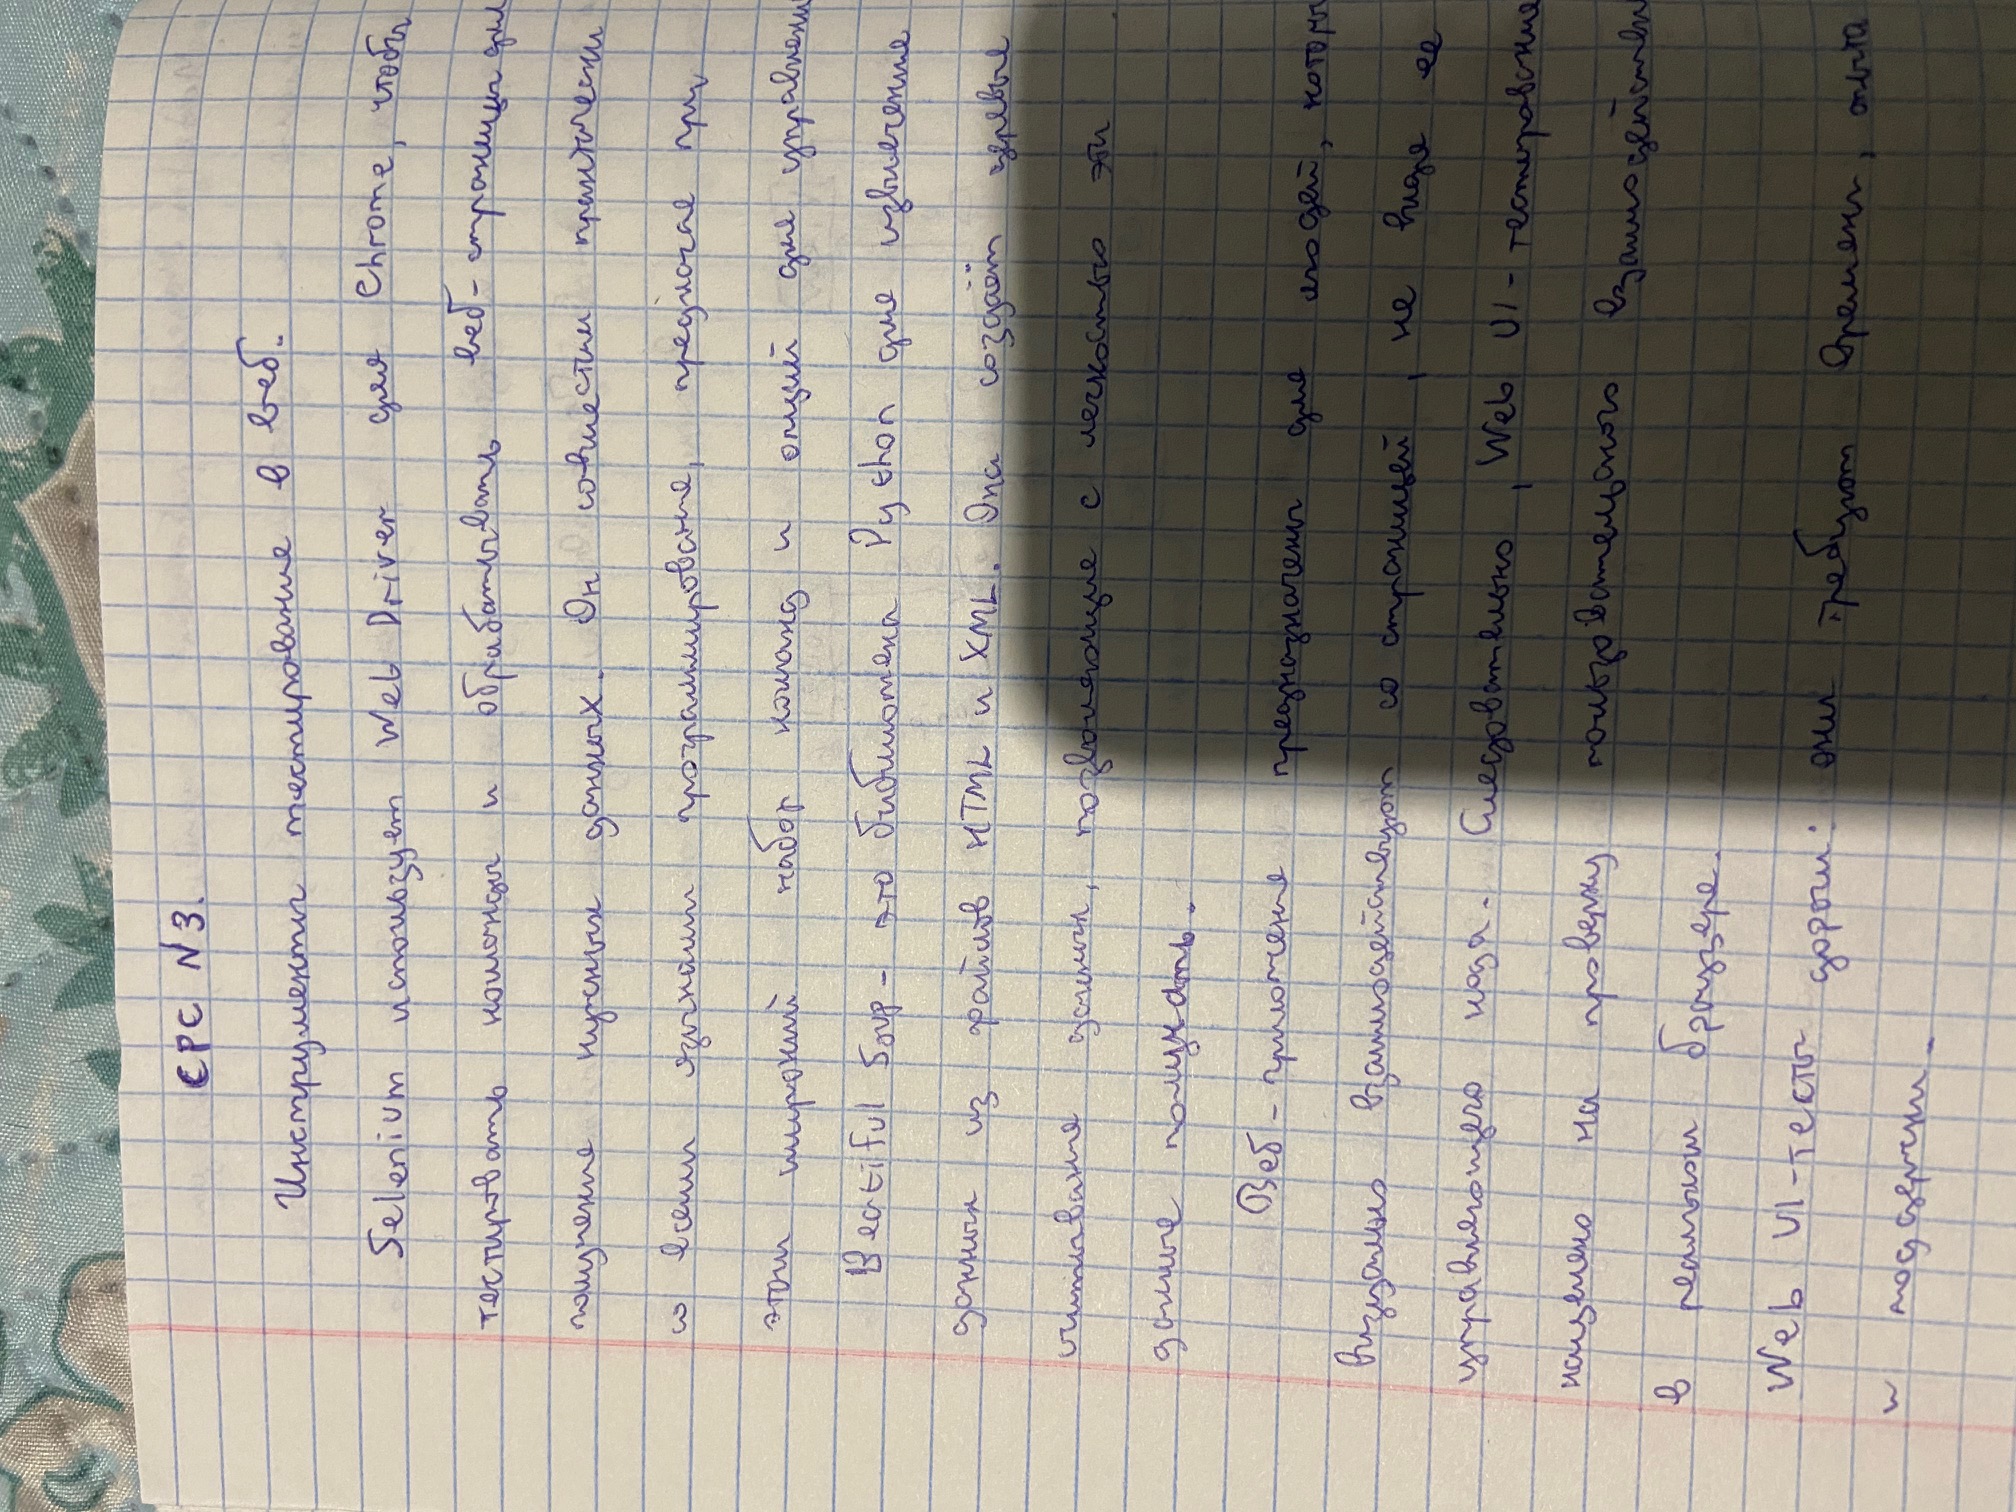 СРС N3.
Инструменты тестирование в веб.
Selenium использует Web Driver для Chrome, чтобы
тестировать команды и обрабатывать веб-страницы для
получение нужных данных. Он совместим практически
со всеми языками программирование, предлагая при
этом широкий набор команд и опций для управлени
Beatiful Soup - это библиотека Python для извлечение
данных из файлов HTML и XML. Она создаёт деревье
считывание данных, позволяющие с легкостью эти
данные получать.
Веб-приложение предназначены для людей, которы
визуально взаимодействуют со страницей, не видя ее
управляющего кода. Следовательно, Web UI-тестирование
нацелено на проверку пользовательского взаимодействи
в реальном браузере.
Web UI-тесты дороги: они требуют времени, опыта
и поддержки.